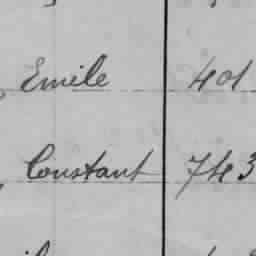 Emile 401
Constant 743